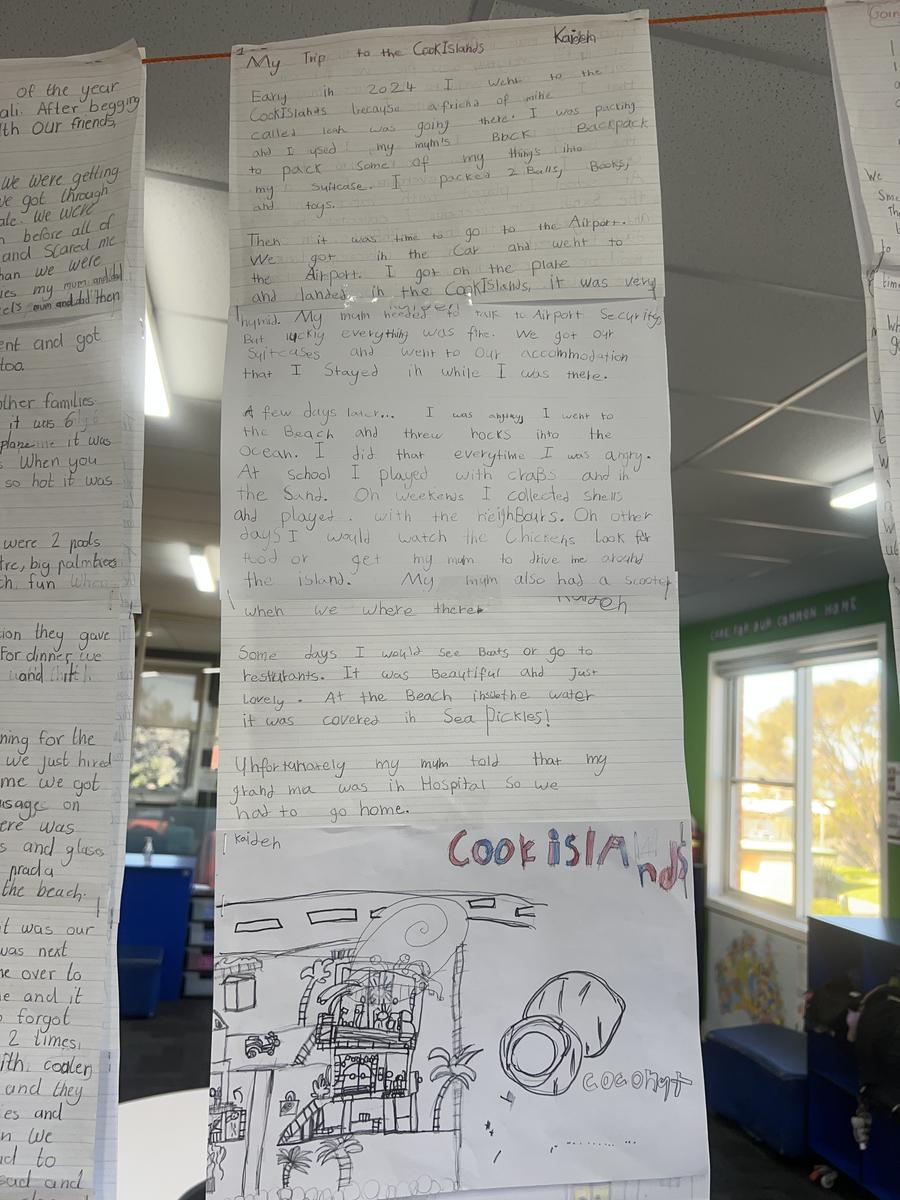 of the year
ali. After begging
th our friends,
we were getting
ve got through
ale. We were
n before all of
and Scared me
han we were
ies my mum and dad
eel's mum and dad then
ent and got
too.
other families
it was 6
plane it was
When you
so hot it was
were 2 pools
tre, big palmtrees
ch fun when
ion they gave
For dinner we
and
ning for the
we just hired
me we got
usages on
ere was
s and glass
prada
the beach.
it was our
was next
me over to
e and it
forgot
2 times,
ith cooler
and they
ies and
n we
ad to
sad and
1
My Trip to the CookIslands
Kaiden
Early in 2024 I went to the
CookIslands because a friend of mine
called leah was going there. I was packing
and I used my mum's Back Backpack
to pack some of my things into
my suitcase. I packed 2 Balls, Books,
and toys.
Then it was time to go to the Airport.
We got in the Car and went to
the Airport. I got on the plane
and landed in the CookIslands, it was very
humid. My mum needed to talk to Airport Security
But luckly everything was fine. We got our
Suitcases and went to our accommodation
that I Stayed in while I was there.
A few days later... I was angry I went to
the Beach and threw rocks into the
Ocean. I did that everytime I was angry.
At school I played with craBs and in
the Sand. On weekends I collected shells
and played. with the neighBours. On other
days I would watch the Chickens look for
food or get my mum to drive me around
the island. My mum also had a scooter
Kaiden
when we where there
Some days I would see Boats or go to
resturants. It was Beautiful and Just
Lovely. At the Beach inside the water
it was covered in Sea Pickles!
Unfortunately my mum told that my
grand ma was in Hospital So we
had to go home.
Kaiden
Cook islands
coconut
Going
We
time
CARE FOR OUR COMMON HOME